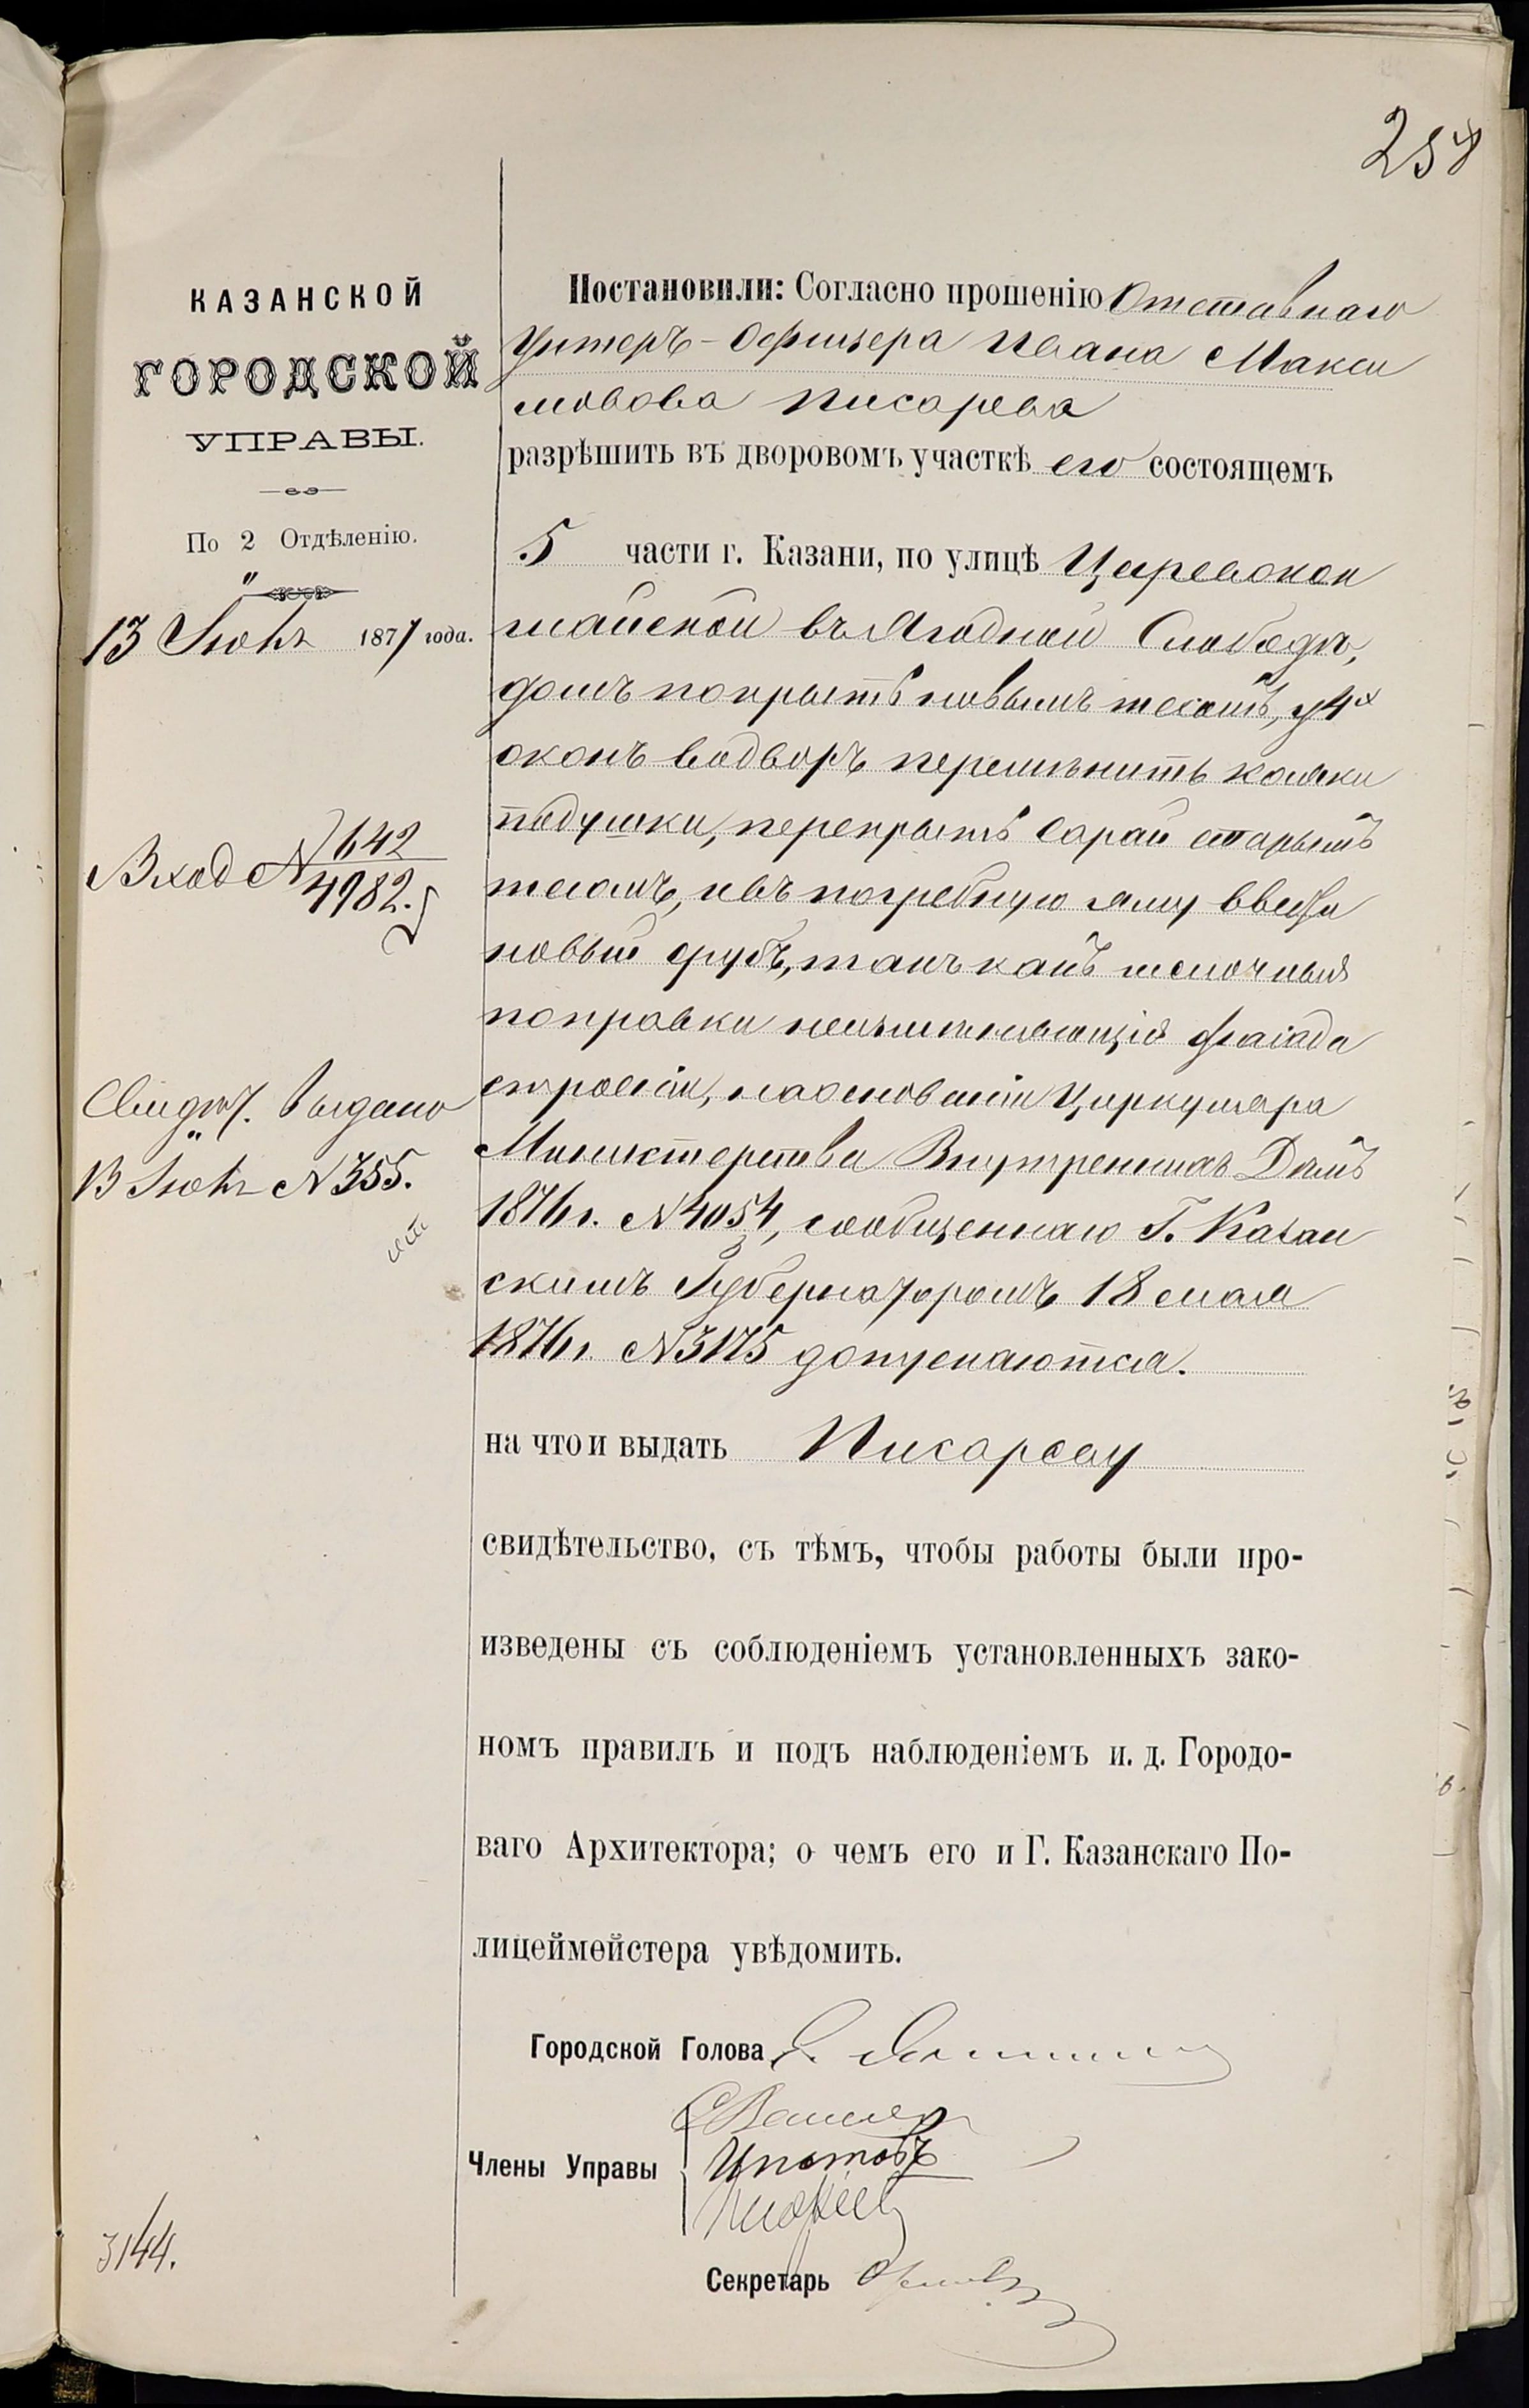 258
КАЗАНСКОЙ
ГОРОДСКОЙ
УПРАВЫ.
По 2 Отдѣленію.
13 Іюня 1877 года.
Вход № 642
4982.
Свидѣт. выдано
13 Іюня № 355.
3144.
Постановили: Согласно прошенію Отставнаго
Унтеръ-Офицера Ивана Макси
мовова Писарева
разрѣшить въ дворовомъ участкѣ его состоящемъ
5 части г. Казани, по улицѣ Царевокок
шайской въ Ягодной Слободѣ,
домъ покрыть новымъ тесомъ, у 4х
оконъ во дворѣ перемѣнить косяки
подушки, перекрыть сарай старымъ
тесомъ, и въ погребную яму ввести
новый срубъ, такъ какъ мелочныя
поправки неизмѣняющія фасада
строенія, на основаніи Циркуляра
Министерства Внутреннихъ Дѣлъ
1876 г. № 4054, сообщеннаго Г. Казан
скимъ Губернаторомъ 18 мая
1876 г. № 3175 допускаются.
на что и выдать Писареву
свидѣтельство, съ тѣмъ, чтобы работы были про-
изведены съ соблюденіемъ установленныхъ зако-
номъ правилъ и подъ наблюденіемъ и. д. Городо-
ваго Архитектора; о чемъ его и Г. Казанскаго По-
лицеймейстера увѣдомить.
Городской Голова
Члены Управы
Ипатовъ
Секретарь